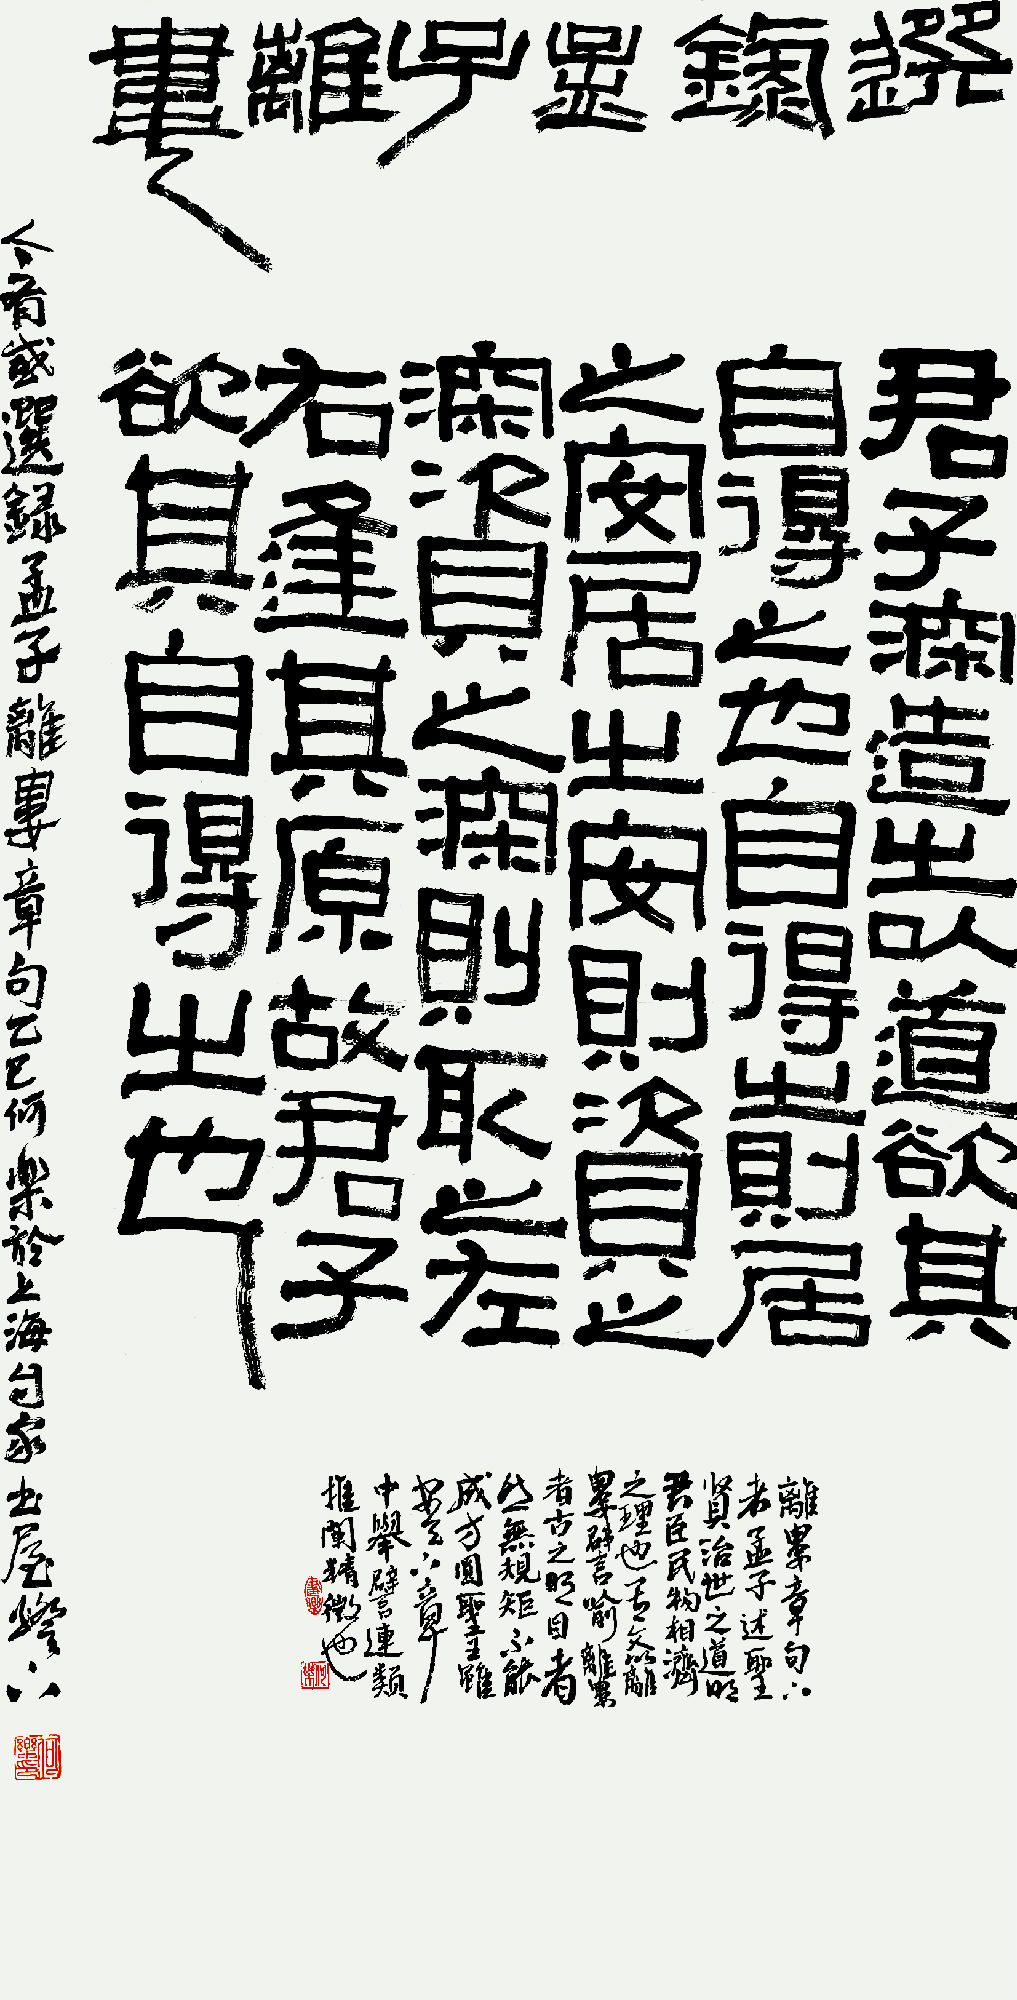 選錄孟子離婁
君子深造之以道欲其
自得之也自得之則居
之安居之安則資之
深資之深則取之左
右逢其原故君子
欲其自得之也
離婁章句下
者孟子述聖
賢治世之道明
君臣民物相濟
之理也離
婁譬喻離婁
者古之明目者
然無規矩不能
成方圓聖王雖
下章
中舉譬連類
推闡精微也
今有或選錄孟子離婁章句乙巳何樂於上海自家書屋燈下